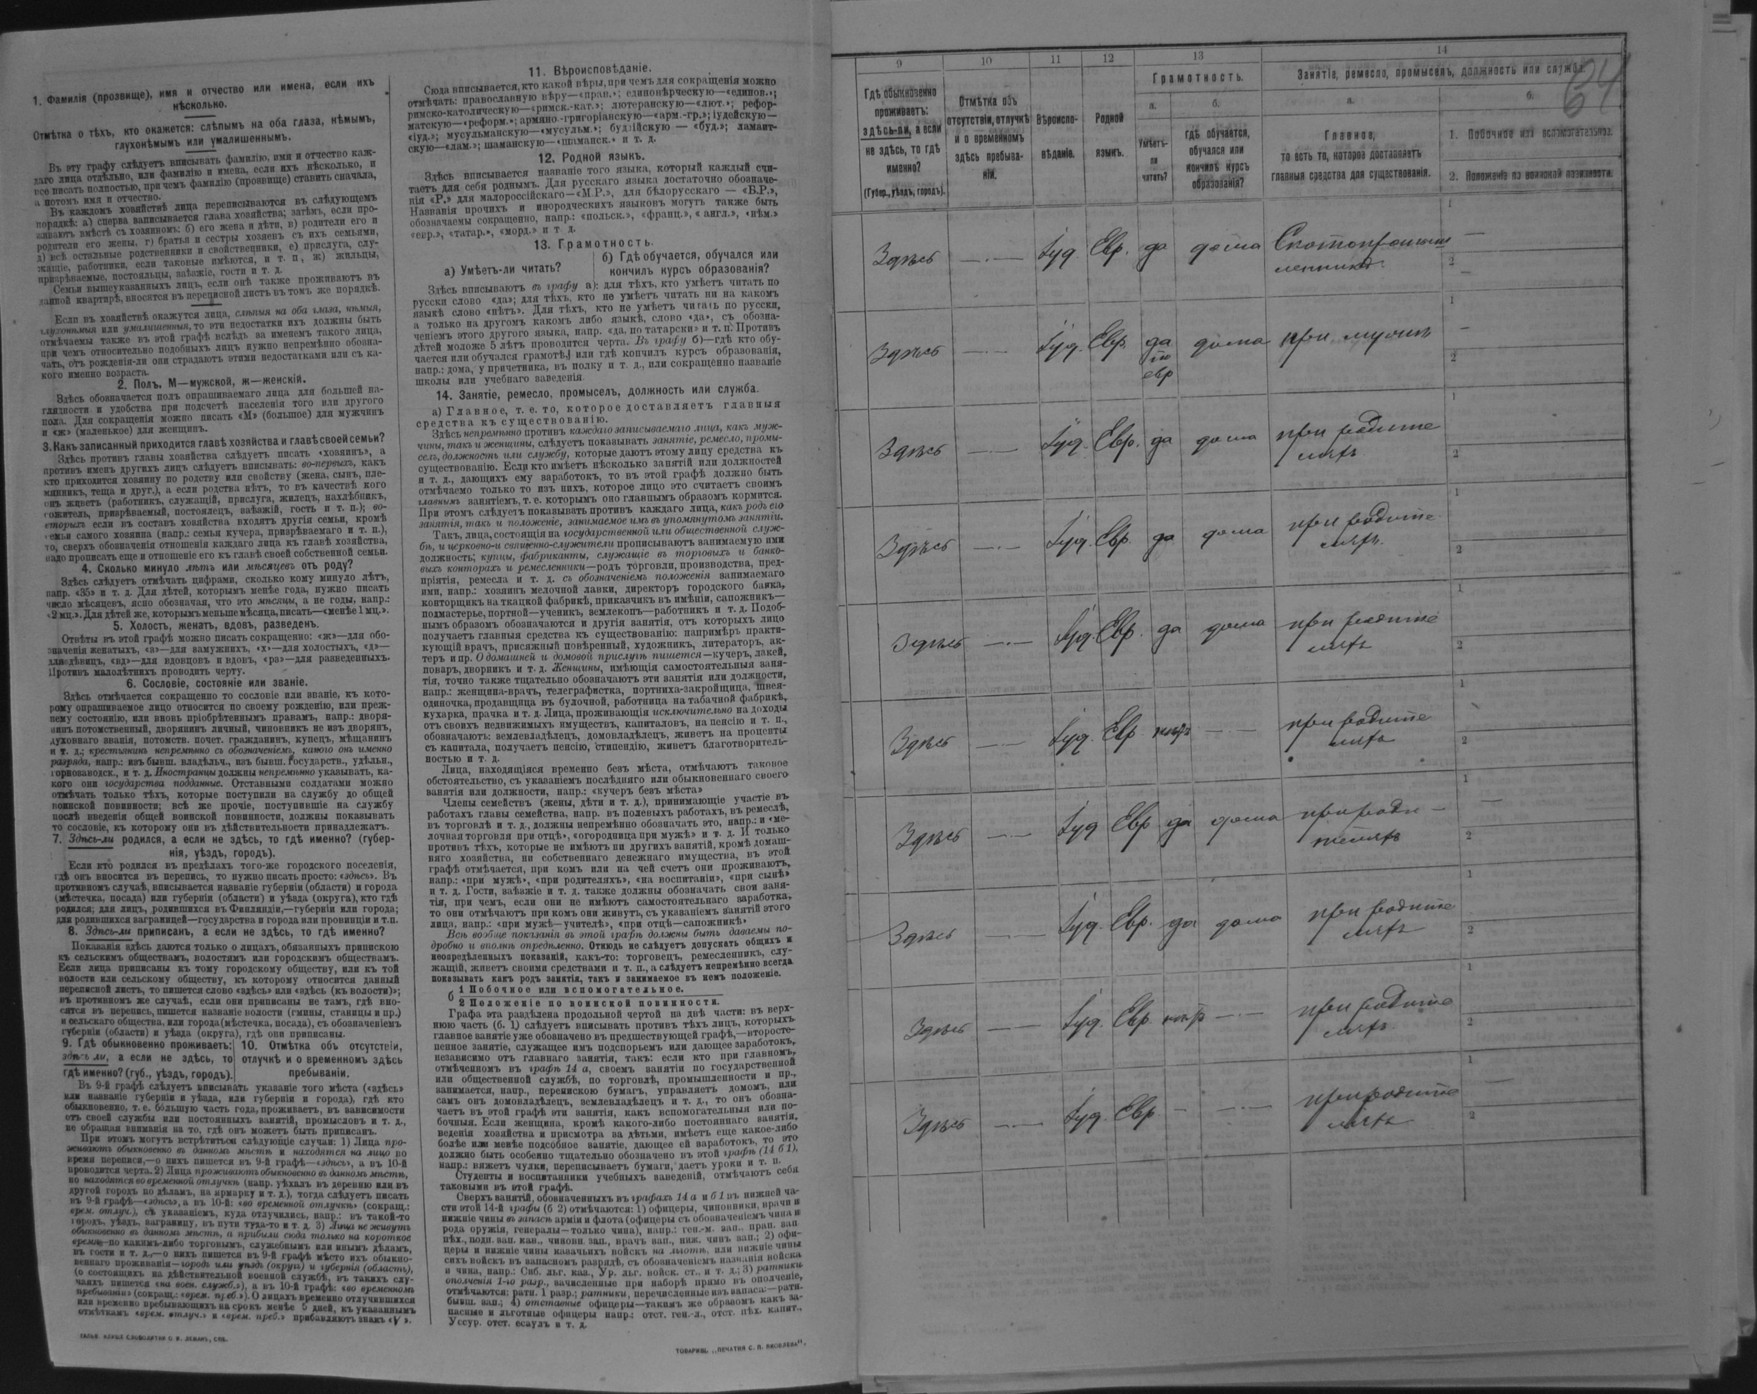 1. Фамилія (прозвище), имя и отчество или имена, если ихъ
нѣсколько.
Отмѣтка о тѣхъ, кто окажется: слѣпымъ на оба глаза, нѣмымъ,
глухонѣмымъ или умалишеннымъ.
Въ эту графу слѣдуетъ вписывать фамилію, имя и отчество каж-
даго лица отдѣльно, или фамилію и имена, если ихъ нѣсколько, и
все писать полностью, при чемъ фамилію (прозвище) ставить сначала,
а потомъ имя и отчество.
Въ каждомъ хозяйствѣ лица переписываются въ слѣдующемъ
порядкѣ: а) сперва записывается глава хозяйства; затѣмъ, если про-
живаютъ вмѣстѣ съ хозяиномъ: б) его жена и дѣти, в) родители его и
родители его жены, г) братья и сестры хозяевъ съ ихъ семьями,
д) всѣ остальные родственники и свойственники, е) прислуга, слу-
жащіе, работники, если таковые имѣются, и т. п., ж) жильцы,
призрѣваемые, постояльцы, заѣзжіе, гости и т. д.
Семьи вышеуказанныхъ лицъ, если онѣ также проживаютъ въ
данной квартирѣ, вносятся въ переписной листъ въ томъ же порядкѣ.
Если въ хозяйствѣ окажутся лица, слѣпыя на оба глаза, нѣмыя,
глухонѣмыя или умалишенныя, то эти недостатки ихъ должны быть
отмѣчаемы также въ этой графѣ вслѣдъ за именемъ такого лица,
при чемъ относительно подобныхъ лицъ нужно непремѣнно обозна-
чать, отъ рожденія-ли они страдаютъ этими недостатками или съ ка-
кого именно возраста.
2. Полъ. М—мужской, ж—женскій.
Здѣсь обозначается полъ опрашиваемаго лица для большей на-
глядности и удобства при подсчетѣ населенія того или другого
пола. Для сокращенія можно писать «М» (большое) для мужчинъ
и «ж» (маленькое) для женщинъ.
3. Какъ записанный приходится главѣ хозяйства и главѣ своей семьи?
Здѣсь противъ главы хозяйства слѣдуетъ писать «хозяинъ», а
противъ именъ другихъ лицъ слѣдуетъ вписывать: во-первыхъ, какъ
кто приходится хозяину по родству или свойству (жена, сынъ, пле-
мянникъ, теща и друг.), а если родства нѣтъ, то въ качествѣ кого
онъ живетъ (работникъ, служащій, прислуга, жилецъ, нахлѣбникъ,
сожитель, призрѣваемый, постоялецъ, заѣзжій, гость и т. п.); во-
вторыхъ если въ составъ хозяйства входятъ другія семьи, кромѣ
семьи самого хозяина (напр.: семья кучера, призрѣваемаго и т. п.),
то, сверхъ обозначенія отношенія каждаго лица къ главѣ хозяйства,
надо прописать еще и отношеніе его къ главѣ своей собственной семьи.
4. Сколько минуло лѣтъ или мѣсяцевъ отъ роду?
Здѣсь слѣдуетъ отмѣчать цифрами, сколько кому минуло лѣтъ,
напр. «35» и т. д. Для дѣтей, которымъ менѣе года, нужно писать
число мѣсяцевъ, ясно обозначая, что это мѣсяцы, а не годы, напр.:
«2 мц.». Для дѣтей же, которымъ меньше мѣсяца, писать—«менѣе 1 мц.».
5. Холостъ, женатъ, вдовъ, разведенъ.
Отвѣты въ этой графѣ можно писать сокращенно: «ж»—для обо-
значенія женатыхъ, «з»—для замужнихъ, «х»—для холостыхъ, «д»—
для дѣвицъ, «вд»—для вдовцовъ и вдовъ, «раз»—для разведенныхъ.
Противъ малолѣтнихъ проводить черту.
6. Сословіе, состояніе или званіе.
Здѣсь отмѣчается сокращенно то сословіе или званіе, къ кото-
рому опрашиваемое лицо относится по своему рожденію, или преж-
нему состоянію, или вновь пріобрѣтеннымъ правамъ, напр.: дворя-
нинъ потомственный, дворянинъ личный, чиновникъ не изъ дворянъ,
духовнаго званія, потомств. почет. гражданинъ, купецъ, мѣщанинъ
и т. д.; крестьянинъ непремѣнно съ обозначеніемъ, какого онъ именно
разряда, напр.: изъ бывш. владѣльч., изъ бывш. государств., удѣльн.,
горнозаводск., и т. д. Иностранцы должны непремѣнно указывать, ка-
кого они государства подданные. Отставными солдатами можно
отмѣчать только тѣхъ, которые поступили на службу до общей
воинской повинности; всѣ же прочіе, поступившіе на службу
послѣ введенія общей воинской повинности, должны показывать
то сословіе, къ которому они въ дѣйствительности принадлежатъ.
7. Здѣсь-ли родился, а если не здѣсь, то гдѣ именно? (губер-
нія, уѣздъ, городъ).
Если кто родился въ предѣлахъ того-же городского поселенія,
гдѣ онъ вносится въ перепись, то нужно писать просто: «здѣсь». Въ
противномъ случаѣ, вписывается названіе губерніи (области) и города
(мѣстечка, посада) или губерніи (области) и уѣзда (округа), кто гдѣ
родился; для лицъ, родившихся въ Финляндіи,—губерніи или города;
для родившихся заграницей—государства и города или провинціи и т.п.
8. Здѣсь-ли приписанъ, а если не здѣсь, то гдѣ именно?
Показанія здѣсь даются только о лицахъ, обязанныхъ припискою
къ сельскимъ обществамъ, волостямъ или городскимъ обществамъ.
Если лица приписаны къ тому городскому обществу, или къ той
волости или сельскому обществу, къ которому относится данный
переписной листъ, то пишется слово «здѣсь» или «здѣсь (къ волости)»;
въ противномъ же случаѣ, если они приписаны не тамъ, гдѣ вно-
сятся въ перепись, пишется названіе волости (гмины, станицы и пр.)
и сельскаго общества, или города (мѣстечка, посада), съ обозначеніемъ
губерніи (области) и уѣзда (округа), гдѣ они приписаны.
9. Гдѣ обыкновенно проживаетъ:
здѣсь ли, а если не здѣсь, то
гдѣ именно? (губ., уѣздъ, городъ).
10. Отмѣтка объ отсутствіи,
отлучкѣ и о временномъ здѣсь
пребываніи.
Въ 9-й графѣ слѣдуетъ вписывать указаніе того мѣста («здѣсь»
или названіе губерніи и уѣзда, или губерніи и города), гдѣ кто
обыкновенно, т. е. большую часть года, проживаетъ, въ зависимости
отъ своей службы или постоянныхъ занятій, промысловъ и т. д.,
не обращая вниманія на то, гдѣ онъ можетъ быть приписанъ.
При этомъ могутъ встрѣтиться слѣдующіе случаи: 1) Лица про-
живаютъ обыкновенно въ данномъ мѣстѣ и находятся на лицо во
время переписи,—о нихъ пишется въ 9-й графѣ—«здѣсь», а въ 10-й
проводится черта. 2) Лица проживаютъ обыкновенно въ данномъ мѣстѣ,
но находятся во временной отлучкѣ (напр. уѣхалъ въ деревню или въ
другой городъ по дѣламъ, на ярмарку и т. д.), тогда слѣдуетъ писать
въ 9-й графѣ—«здѣсь», а въ 10-й: «во временной отлучкѣ» (сокращ.:
врем. отлуч.), съ указаніемъ, куда отлучились, напр.: въ такой-то
городъ, уѣздъ, заграницу, въ пути туда-то и т. д. 3) Лица не живутъ
обыкновенно въ данномъ мѣстѣ, а прибыли сюда только на короткое
время—по какимъ-либо торговымъ, служебнымъ или инымъ дѣламъ,
въ гости и т. д.,—о нихъ пишется въ 9-й графѣ мѣсто ихъ обыкно-
веннаго проживанія—городъ или уѣздъ (округъ) и губернія (область),
(о состоящихъ на дѣйствительной военной службѣ, въ такихъ слу-
чаяхъ пишется «на воен. служб.»), а въ 10-й графѣ: «во временномъ
пребываніи» (сокращ.: «врем. преб.»). О лицахъ временно отлучившихся
или временно пребывающихъ на срокъ менѣе 5 дней, къ указаннымъ
отмѣткамъ «врем. отлуч.» и «врем. преб.» прибавляютъ знакъ «V».
11. Вѣроисповѣданіе.
Сюда вписывается, кто какой вѣры, при чемъ для сокращенія можно
отмѣчать: православную вѣру—«прав.»; единовѣрческую—«единов.»;
римско-католическую—«римск.-кат.»; лютеранскую—«лют.»; рефор-
матскую—«реформ.»; армяно-григоріанскую—«арм.-гр.»; іудейскую—
«іуд.»; мусульманскую—«мусульм.»; буддійскую — «буд.»; ламаит-
скую—«лам.»; шаманскую—«шаманск.» и т. д.
12. Родной языкъ.
Здѣсь вписывается названіе того языка, который каждый счи-
таетъ для себя роднымъ. Для русскаго языка достаточно обозначе-
нія «Р.» для малороссійскаго—«М.Р.», для бѣлорусскаго — «Б.Р.»,
Названія прочихъ и инородческихъ языковъ могутъ также быть
обозначаемы сокращенно, напр.: «польск.», «франц.», «англ.», «нѣм.»
«евр.», «татар.», «морд.» и т д.
13. Грамотность.
а) Умѣетъ-ли читать?
б) Гдѣ обучается, обучался или
кончилъ курсъ образованія?
Здѣсь вписываютъ въ графу а): для тѣхъ, кто умѣетъ читать по
русски слово «да»; для тѣхъ, кто не умѣетъ читать ни на какомъ
языкѣ слово «нѣтъ». Для тѣхъ, кто не умѣетъ читать по русски,
а только на другомъ какомъ либо языкѣ, слово «да», съ обозна-
ченіемъ этого другого языка, напр. «да, по татарски» и т. п. Противъ
дѣтей моложе 5 лѣтъ проводится черта. Въ графу б)—гдѣ кто обу-
чается или обучался грамотѣ, или гдѣ кончилъ курсъ образованія,
напр.: дома, у причетника, въ полку и т. д., или сокращенно названіе
школы или учебнаго заведенія.
14. Занятіе, ремесло, промыселъ, должность или служба.
а) Главное, т. е. то, которое доставляетъ главныя
средства къ существованію.
Здѣсь непремѣнно противъ каждаго записываемаго лица, какъ муж-
чины, такъ и женщины, слѣдуетъ показывать занятіе, ремесло, промы-
селъ, должность или службу, которые даютъ этому лицу средства къ
существованію. Если кто имѣетъ нѣсколько занятій или должностей
и т. д., дающихъ ему заработокъ, то въ этой графѣ должно быть
отмѣчаемо только то изъ нихъ, которое лицо это считаетъ своимъ
главнымъ занятіемъ, т. е. которымъ оно главнымъ образомъ кормится.
При этомъ слѣдуетъ показывать противъ каждаго лица, какъ родъ его
занятія, такъ и положеніе, занимаемое имъ въ упомянутомъ занятіи.
Такъ, лица, состоящія на государственной или общественной служ-
бѣ, и церковно-и священно-служители прописываютъ занимаемую ими
должность; купцы, фабриканты, служащіе въ торговыхъ и банко-
выхъ конторахъ и ремесленники—родъ торговли, производства, пред-
пріятія, ремесла и т. д. съ обозначеніемъ положенія занимаемаго
ими, напр.: хозяинъ мелочной лавки, директоръ городского банка,
конторщикъ на ткацкой фабрикѣ, приказчикъ въ имѣніи, сапожникъ—
подмастерье, портной—ученикъ, землекопъ—работникъ и т. д. Подоб-
нымъ образомъ обозначаются и другія занятія, отъ которыхъ лицо
получаетъ главныя средства къ существованію: напримѣръ практи-
кующій врачъ, присяжный повѣренный, художникъ, литераторъ, ак-
теръ и пр. О домашней и домовой прислугѣ пишется—кучеръ, лакей,
поваръ, дворникъ и т. д. Женщины, имѣющія самостоятельныя заня-
тія, точно также тщательно обозначаютъ эти занятія или должности,
напр.: женщина-врачъ, телеграфистка, портниха-закройщица, швея-
одиночка, продавщица въ булочной, работница на табачной фабрикѣ,
кухарка, прачка и т. д. Лица, проживающія исключительно на доходы
отъ своихъ недвижимыхъ имуществъ, капиталовъ, на пенсію и т. п.,
обозначаютъ: землевладѣлецъ, домовладѣлецъ, живетъ на проценты
съ капитала, получаетъ пенсію, стипендію, живетъ благотворитель-
ностью и т. д.
Лица, находящіяся временно безъ мѣста, отмѣчаютъ таковое
обстоятельство, съ указаніемъ послѣдняго или обыкновеннаго своего
занятія или должности, напр.: «кучеръ безъ мѣста»
Члены семействъ (жены, дѣти и т. д.), принимающіе участіе въ
работахъ главы семейства, напр. въ полевыхъ работахъ, въ ремеслѣ,
въ торговлѣ и т. д., должны непремѣнно обозначать это, напр.: и «ме-
лочная торговля при отцѣ», «огородница при мужѣ» и т. д. И только
противъ тѣхъ, которые не имѣютъ ни другихъ занятій, кромѣ домаш-
няго хозяйства, ни собственнаго денежнаго имущества, въ этой
графѣ отмѣчается, при комъ или на чей счетъ они проживаютъ,
напр.: «при мужѣ», «при родителяхъ», «на воспитаніи», «при сынѣ»
и т. д. Гости, заѣзжіе и т. д. также должны обозначать свои заня-
тія, при чемъ, если они не имѣютъ самостоятельнаго заработка,
то они отмѣчаютъ при комъ они живутъ, съ указаніемъ занятій этого
лица, напр.: «при мужѣ—учителѣ», «при отцѣ—сапожникѣ»
Всѣ вообще показанія въ этой графѣ должны быть даваемы по-
дробно и вполнѣ опредѣленно. Отнюдь не слѣдуетъ допускать общихъ и
неопредѣленныхъ показаній, какъ-то: торговецъ, ремесленникъ, слу-
жащій, живетъ своими средствами и т. п., а слѣдуетъ непремѣнно всегда
показывать какъ родъ занятія, такъ и занимаемое въ немъ положеніе.
б 1 Побочное или вспомогательное.
2 Положеніе по воинской повинности.
Графа эта раздѣлена продольной чертой на двѣ части: въ верх-
нюю часть (б. 1) слѣдуетъ вписывать противъ тѣхъ лицъ, которыхъ
главное занятіе уже обозначено въ предшествующей графѣ,—второсте-
пенное занятіе, служащее имъ подспорьемъ или дающее заработокъ,
независимо отъ главнаго занятія, такъ: если кто при главномъ,
отмѣченномъ въ графѣ 14 а, своемъ занятіи по государственной
или общественной службѣ, по торговлѣ, промышленности и пр.,
занимается, напр., перепискою бумагъ, управляетъ домомъ, или
самъ онъ домовладѣлецъ, землевладѣлецъ и т. д., то онъ обозна-
чаетъ въ этой графѣ эти занятія, какъ вспомогательныя или по-
бочныя. Если женщина, кромѣ какого-либо постояннаго занятія,
веденія хозяйства и присмотра за дѣтьми, имѣетъ еще какое-либо
болѣе или менѣе подсобное занятіе, дающее ей заработокъ, то это
должно быть особенно тщательно обозначено въ этой графѣ (14 б 1),
напр.: вяжетъ чулки, переписываетъ бумаги, даетъ уроки и т. п.
Студенты и воспитанники учебныхъ заведеній, отмѣчаютъ себя
таковыми въ этой графѣ.
Сверхъ занятій, обозначенныхъ въ графахъ 14 а и б 1 въ нижней ча-
сти этой 14-й графы (б 2) отмѣчаются: 1) офицеры, чиновники, врачи и
нижніе чины въ запасѣ арміи и флота (офицеры съ обозначеніемъ чина и
рода оружія, генералы—только чина), напр.: ген.-м. зап., прап. зап.
пѣх., подп. зап. кав., чиновн. зап., врачъ зап., ниж. чинъ зап.; 2) офи-
церы и нижніе чины казачьихъ войскъ на льготѣ, или нижніе чины
сихъ войскъ въ запасномъ разрядѣ, съ обозначеніемъ названія войска
и чина, напр.: Сиб. льг. каз., Ур. льг. войск. ст., и т. д.; 3) ратники
ополченія 1-го разр., зачисленные при наборѣ прямо въ ополченіе,
отмѣчаются: ратн. 1 разр.; ратники, перечисленные изъ запаса:—ратн.
бывш. зап.; 4) отставные офицеры—такимъ же образомъ какъ за-
пасные и льготные офицеры напр.: отст. ген.-л., отст. пѣх. капит.,
Уссур. отст. есаулъ и т. д.
ТОВАРИЩ. „ПЕЧАТНЯ С. П. ЯКОВЛЕВА“.
64
9 10 11 12 13 14
Гдѣ обыкновенно
проживаетъ:
здѣсь-ли, а если
не здѣсь, то гдѣ
именно?
(Губер., уѣздъ, городъ).
Отмѣтка объ
отсутствіи, отлучкѣ
и о временномъ
здѣсь пребыва-
ніи.
Вѣроиспо-
вѣданіе.
Родной
языкъ.
Грамотность.
а.
Умѣетъ-
ли
читать?
б.
гдѣ обучается,
обучался или
кончилъ курсъ
образованія?
Занятіе, ремесло, промыселъ, должность или служба.
а.
Главное,
то есть то, которое доставляетъ
главныя средства для существованія.
б.
1. Побочное или вспомогательное.
2. Положеніе по воинской повинности.
Здѣсь — Іуд Евр. да дома 1 —
2 —
Здѣсь — Іуд. Евр. да дома при мужѣ 1 —
по 2
евр
Здѣсь — Іуд. Евр. да дома при родите 1
ляхъ 2
Здѣсь — Іуд. Евр. да дома при родите 1
ляхъ 2
Здѣсь — Іуд. Евр. да дома при родите 1
ляхъ 2
Здѣсь — Іуд. Евр нѣтъ — при родите 1
ляхъ 2
Здѣсь — Іуд Евр да дома при роди- 1 —
теляхъ 2
Здѣсь — Іуд. Евр. да дома при родите 1 —
ляхъ 2
Здѣсь — Іуд. Евр нѣтъ — при родите 1 —
ляхъ 2
Здѣсь — Іуд. Евр - — при родите 1 —
ляхъ 2